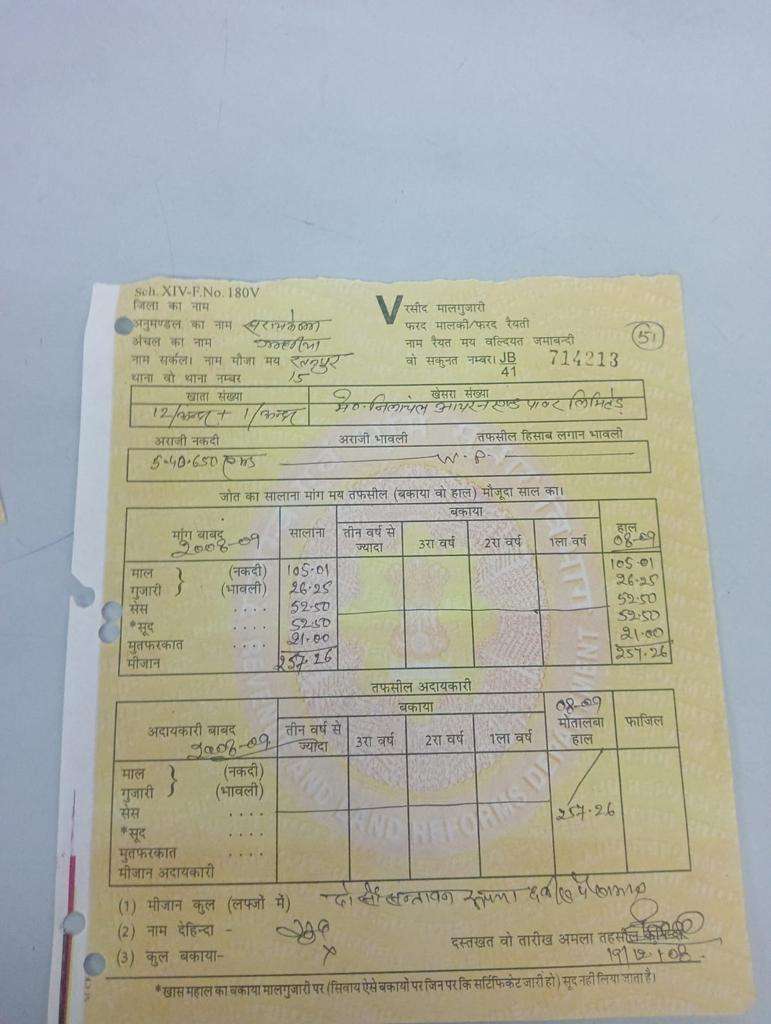 Sch. XIV-F.No. 180V
जिला का नाम
अनुमण्डल का नाम सरायकेला
अंचल का नाम
नाम सर्कल। नाम मौजा मय रतनपुर
थाना वो थाना नम्बर 15
V रसीद मालगुजारी
फरद मालकी/फरद रैयती
नाम रैयत मय वल्दियत जमाबन्दी
वो सकुनत नम्बर। JB 41 714213
51
खाता संख्या खेसरा संख्या
12/ + 1/ मे० निलांचल आयरन एण्ड पावर लिमिटेड
अराजी नकदी अराजी भावली तफसील हिसाब लगान भावली
5-40-650 W. P.
जोत का सालाना मांग मय तफसील (बकाया वो हाल) मौजूदा साल का।
मांग बाबद 2008-09 सालाना बकाया हाल 08-09
तीन वर्ष से ज्यादा 3रा वर्ष 2रा वर्ष 1ला वर्ष
माल } (नकदी) 105-01 105-01
गुजारी } (भावली) 26-25 26-25
सेस .... 52-50 52-50
*सूद .... 52-50 52-50
मुतफरकात .... 21-00 21-00
मीजान 257-26 257-26
तफसील अदायकारी
अदायकारी बाबद 2008-09 बकाया 08-09 मोतालबा हाल फाजिल
तीन वर्ष से ज्यादा 3रा वर्ष 2रा वर्ष 1ला वर्ष
माल } (नकदी)
गुजारी } (भावली)
सेस .... 257-26
*सूद ....
मुतफरकात ....
मीजान अदायकारी
(1) मीजान कुल (लफ्जों में) दो सौ सन्तावन रूपया
(2) नाम देहिन्दा -
(3) कुल बकाया- x
दस्तखत वो तारीख अमला तहसील
19/12/08
*खास महाल का बकाया मालगुजारी पर (सिवाय ऐसे बकायों पर जिन पर कि सर्टिफिकेट जारी हो) सूद नहीं लिया जाता है।